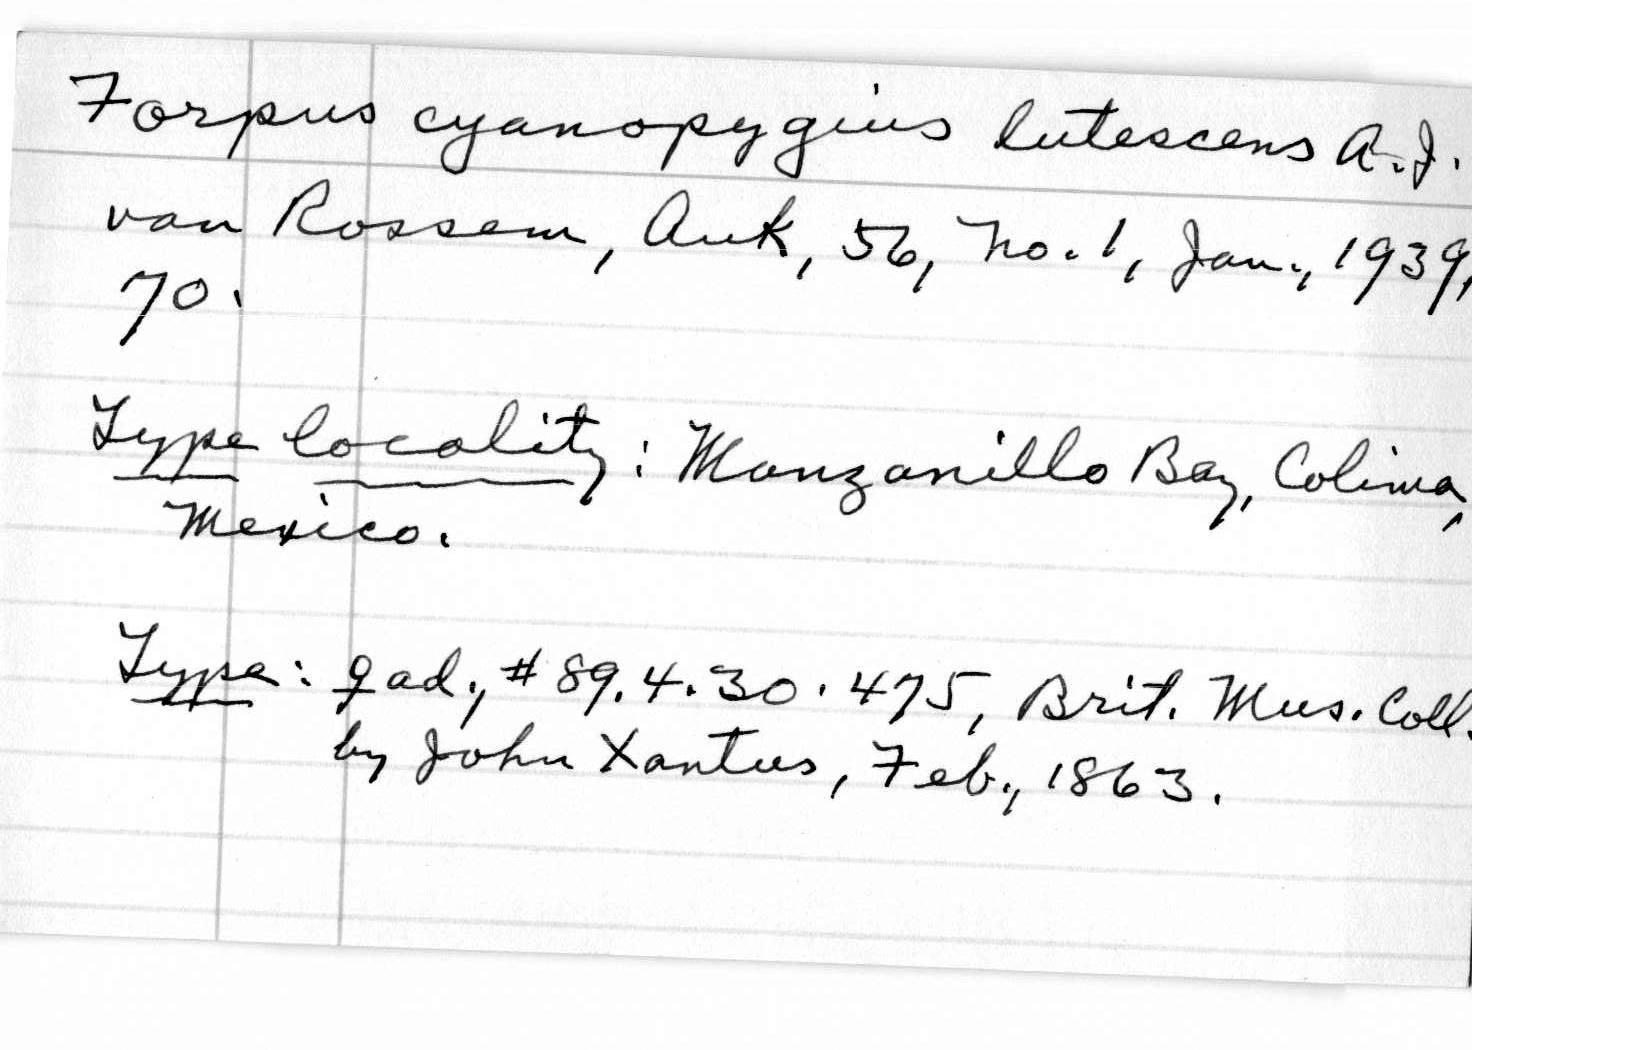 Forpus cyanopygius lutescens A.J.
van Rossem, Auk, 56, No. 1, Jan., 1939,
70.
Type locality: Manzanillo Bay, Colima,
Mexico.
Type: ♀ ad., #89.4.30.475, Brit. Mus. Coll.
by John Xantus, Feb., 1863.